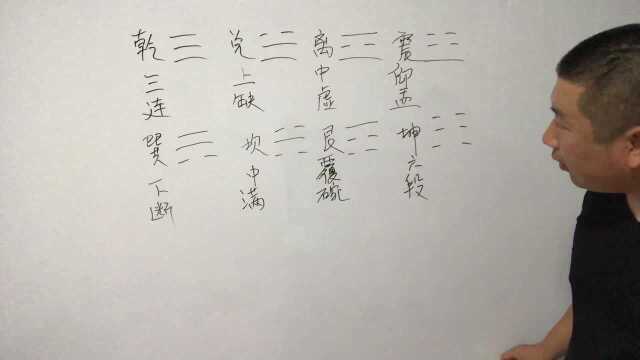 乾三连
兑上缺
离中虚
震仰盂
巽下断
坎中满
艮覆碗
坤六段